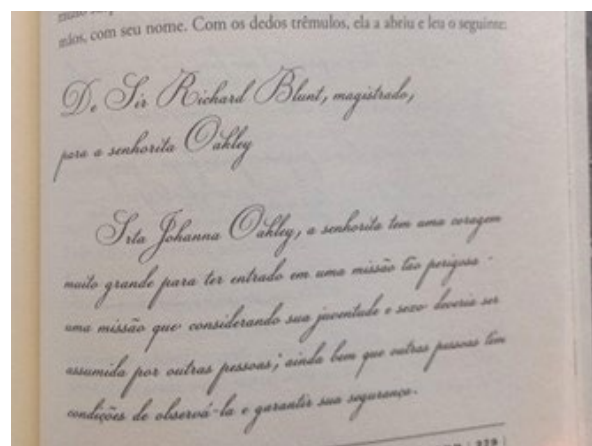 mãos, com seu nome. Com os dedos trêmulos, ela a abriu e leu o seguinte:
De Sir Richard Blunt, magistrado,
para a senhorita Oakley
Srta Johanna Oakley, a senhorita tem uma coragem
muito grande para ter entrado em uma missão tão perigosa -
uma missão que considerando sua juventude e sexo deveria ser
assumida por outras pessoas; ainda bem que outras pessoas têm
condições de observá-la e garantir sua segurança.
329